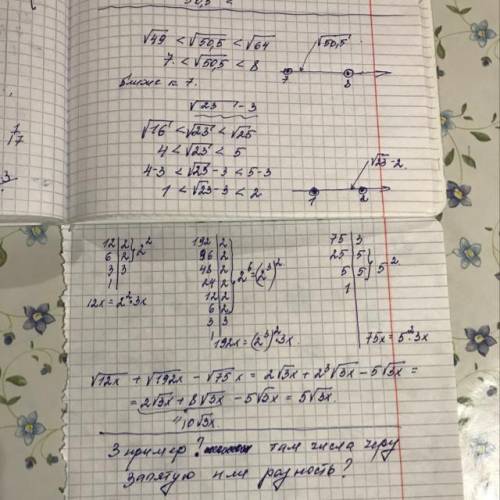 50,5 <
√49 < √50,5 < √64
7 < √50,5 < 8
ближе к 7.
√50,5
7 8
√23 - 3
√16 < √23 < √25
4 < √23 < 5
4-3 < √23 - 3 < 5-3
1 < √23 - 3 < 2
√23 - 2
1 2
7
17
3
12 | 2
6 | 2
3 | 3
1
2²
12x = 2²·3x
192 | 2
96 | 2
48 | 2
24 | 2
12 | 2
6 | 2
3 | 3
1
2⁶ = (2³)²
192x = (2³)²·3x
75 | 3
25 | 5
5 | 5
1
5²
75x = 5²·3x
√12x + √192x - √75x = 2√3x + 2³√3x - 5√3x =
= 2√3x + 8√3x - 5√3x = 5√3x.
10√3x
3 пример? там числа через
запятую или разность?